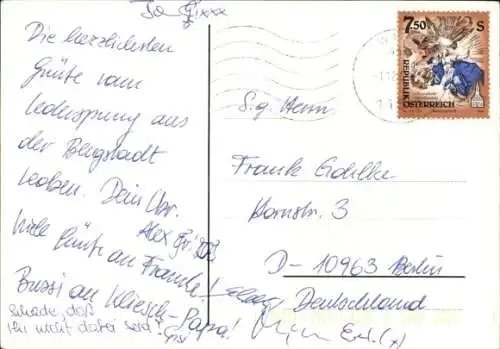 Die herzlichsten
Grüße vom
Ledersprung aus
der Bergstadt
Leoben. Dein Cbr.
Alex
Viele Grüße an Franke!
Bussi an Kliesch-Papa!
Schade, daß
Ihr nicht dabei seid!
7.50 S
REPUBLIK
ÖSTERREICH
S.g. Herrn
Frank
Hornstr. 3
D-10963 Berlin
Deutschland